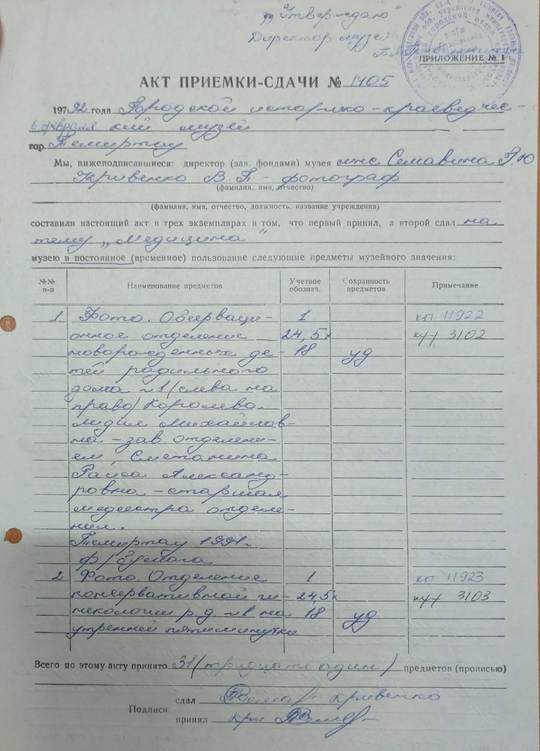 „Утверждаю"
Директор музея
ПРИЛОЖЕНИЕ № 1
АКТ ПРИЕМКИ-СДАЧИ № 1405
1992 года Городской историко-краеведчес-
6 февраля кий музей
гор. Темиртау
Мы, нижеподписавшиеся: директор (зав. фондами) музея мнс Семавина
Кривенко В.П. - фотограф
(фамилия, имя, отчество)
(фамилия, имя, отчество, должность, название учреждения)
составили настоящий акт в трех экземплярах в том, что первый принял, а второй сдал на
тему „Медицина"
музею в постоянное (временное) пользование следующие предметы музейного значения:
№№ п-п Наименование предметов Учетное обознач. Сохранность предметов Примечание
1 Фото. Обсерваци- 1 кп 11922
онное отделение 24,5х 3102
новорожденных де- 18 уд
тей родильного
дома №1 (слева на
право) Королева
Лидия Михайлов-
на - зав отделени-
ем Сметанина
Раиса Александ-
ровна - старшая
медсестра отделе-
ния.
Темиртау 1991.
ф/бумага
2 Фото. Отделение 1 кп 11923
консервативной ги- 24,5х 3103
некологии р.д. №1 на 18 уд
утренней пятиминутке
Всего по этому акту принято 31 (тридцать один) предметов (прописью)
Подписи
сдал Кривенко
принял